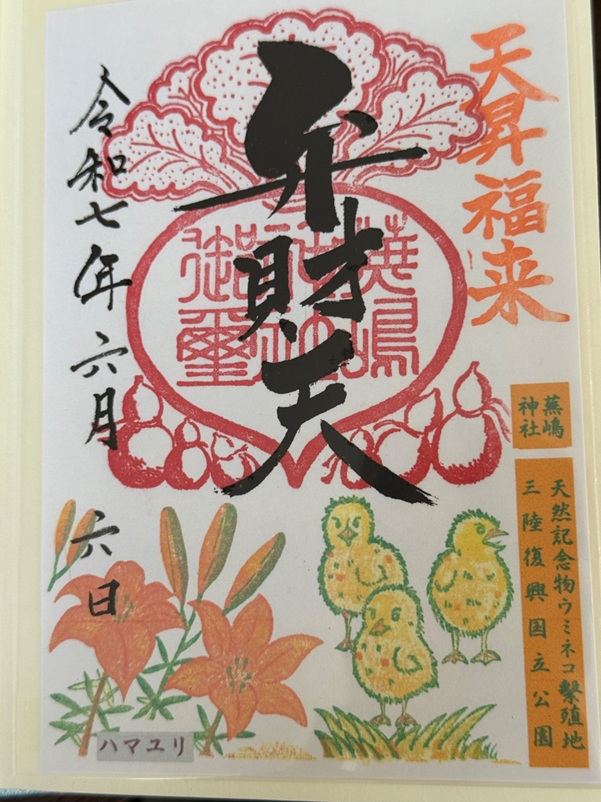 天昇福来
弁財天
蕪嶋
神社
御璽
令和七年六月六日
蕪嶋
神社
天然記念物ウミネコ繁殖地
三陸復興国立公園
ハマユリ